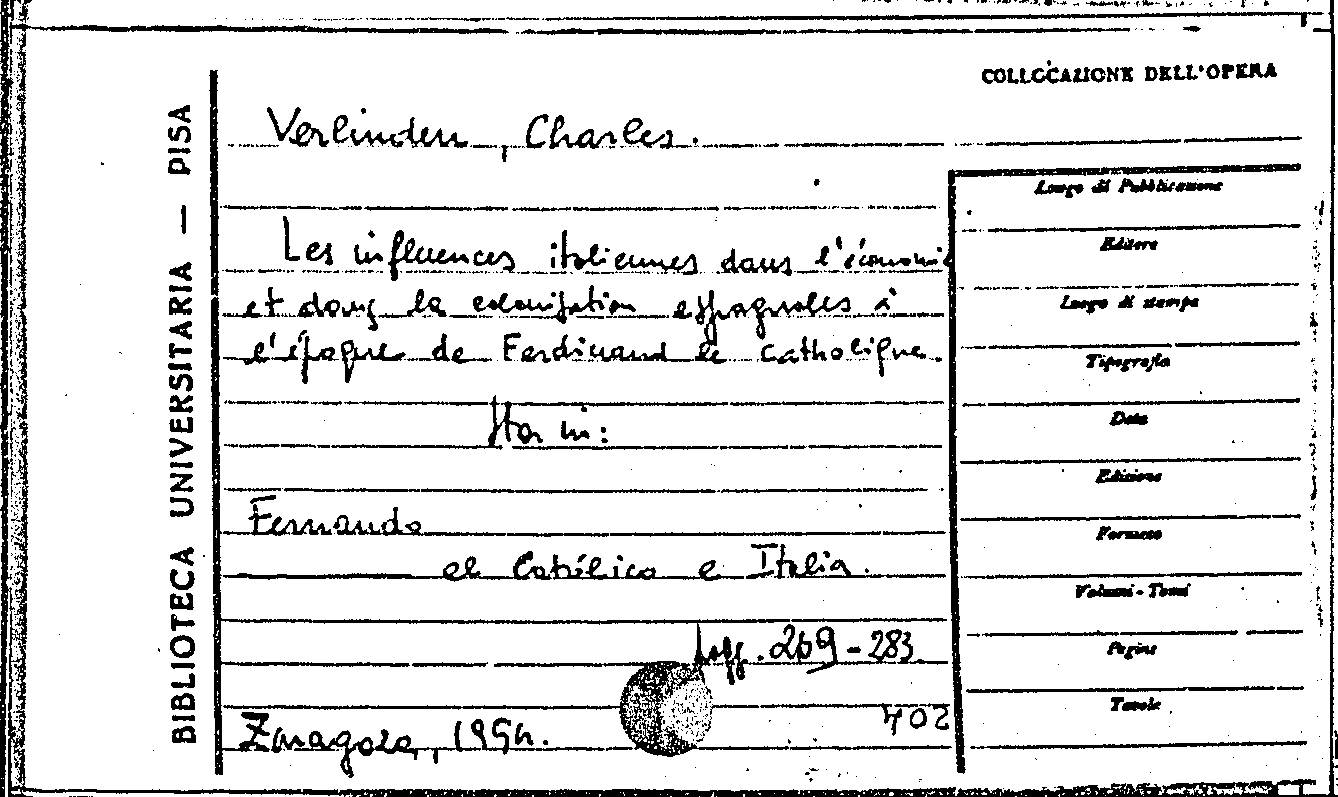 COLLOCAZIONE DELL'OPERA
BIBLIOTECA UNIVERSITARIA — PISA
Verlinden, Charles.
Les influences italiennes dans l'économie
et dans la colonisation espagnoles à
l'époque de Ferdinand le Catholique.
Sta in:
Fernando
el Católico e Italia.
pagg. 269-283
402
Zaragoza, 1954.
Luogo di Pubblicazione
Editore
Luogo di stampa
Tipografia
Data
Edizione
Formato
Volumi - Tomi
Pagine
Tavole